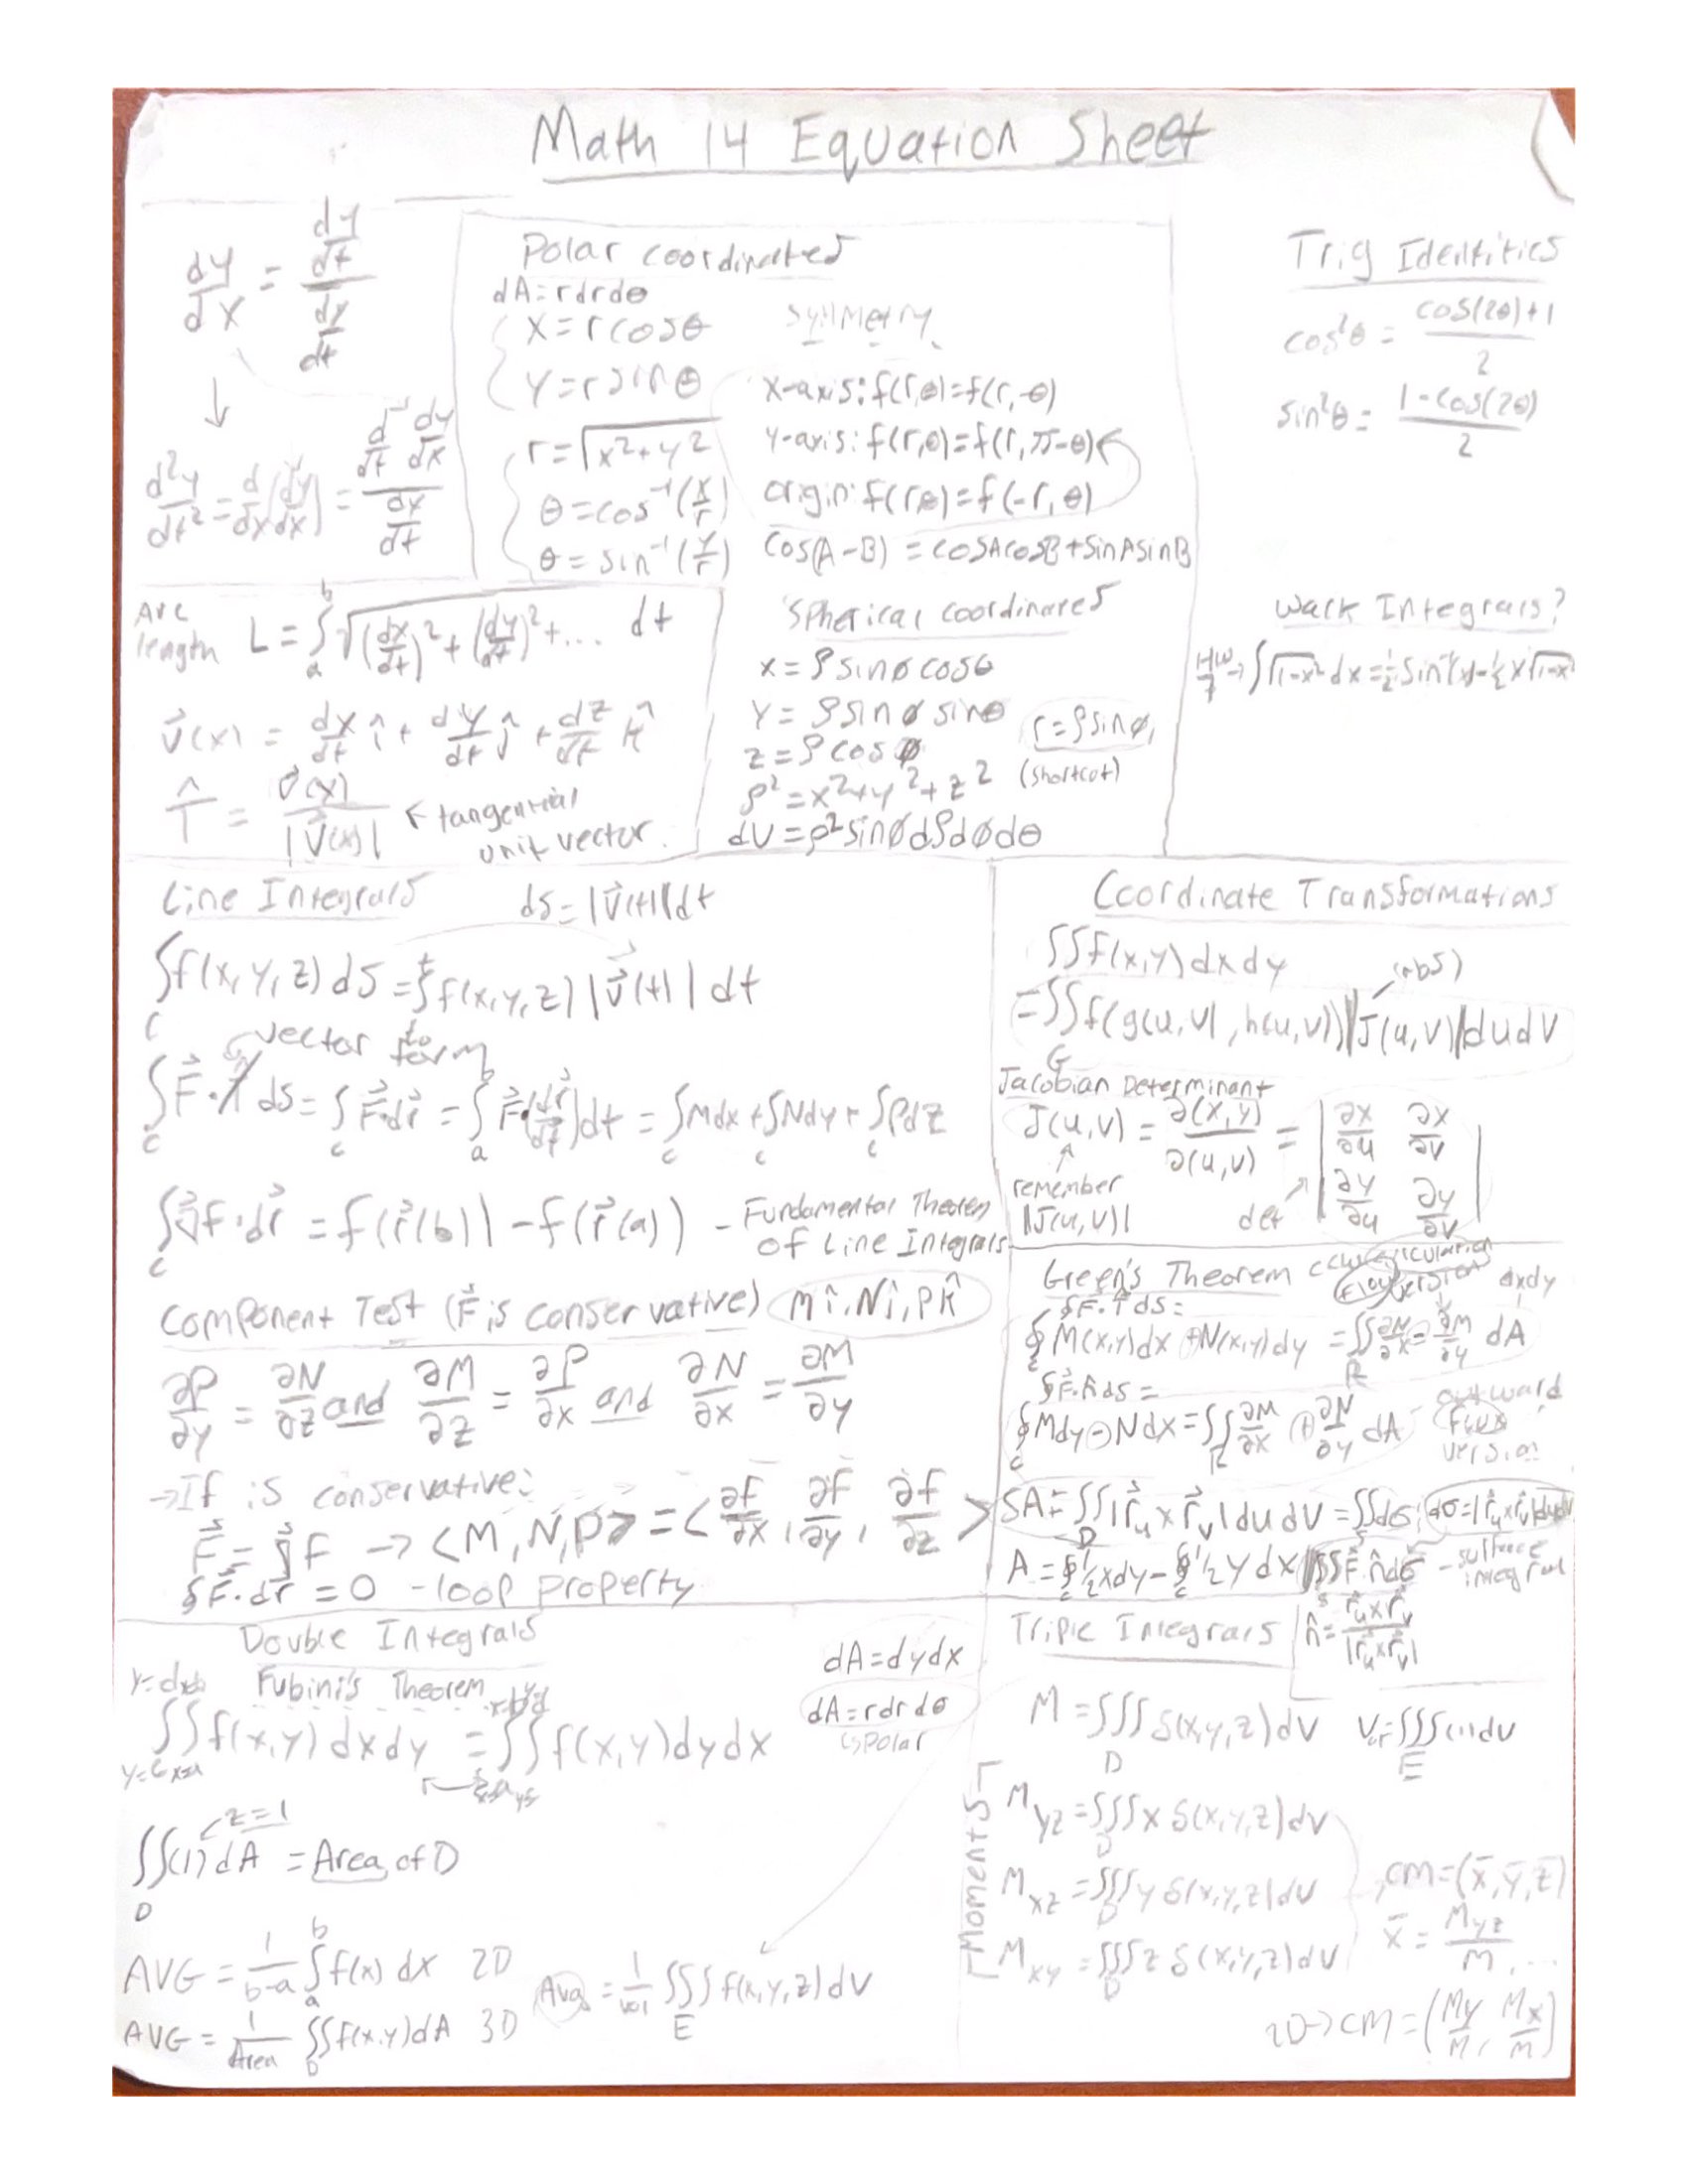 Math 14 Equation Sheet
dy/dx = (dy/dt)/(dy/dt)
↓
d²y/dt² = d/dx(dy/dx) = (d/dt dy/dx)/(dx/dt)
Polar coordinates
dA = r dr dθ
x = r cosθ
y = r sinθ
r = √(x²+y²)
θ = cos⁻¹(x/r)
θ = sin⁻¹(y/r)
symmetry
x-axis: f(r,θ) = f(r,-θ)
y-axis: f(r,θ) = f(r,π-θ)
origin: f(r,θ) = f(-r,θ)
cos(A-B) = cosAcosB + sinAsinB
Trig Identities
cos²θ = (cos(2θ)+1)/2
sin²θ = (1-cos(2θ))/2
Arc length L = ∫ₐᵇ √((dx/dt)² + (dy/dt)² + ... dt
v⃗(x) = dx/dt î + dy/dt ĵ + dz/dt k̂
T̂ = v⃗(x)/|v⃗(x)| ← tangential unit vector
Spherical coordinates
x = ρ sinφ cosθ
y = ρ sinφ sinθ
z = ρ cosφ
r = ρ sinφ
(shortcut)
ρ² = x²+y²+z²
dV = ρ² sinφ dρ dφ dθ
Integrals?
HW 7 → ∫√(1-x²) dx = ½ sin⁻¹(x) - ½ x√(1-x²
Line Integrals ds = |v⃗(t)| dt
∫_C f(x,y,z) ds = ∫ f(x,y,z) |v⃗(t)| dt
vector form
∫_C F⃗·T ds = ∫_C F⃗·dr⃗ = ∫ₐᵇ F⃗·(dr⃗/dt) dt = ∫_C Mdx + ∫_C Ndy + ∫_C Pdz
∫_C ∇⃗f·dr⃗ = f(r⃗(b)) - f(r⃗(a)) - Fundamental Theorem of Line Integrals
Component Test (F⃗ is conservative) Mî, Nî, Pk̂
∂P/∂y = ∂N/∂z and ∂M/∂z = ∂P/∂x and ∂N/∂x = ∂M/∂y
→ If is conservative:
F⃗ = ∇⃗F → <M,N,P> = <∂f/∂x, ∂f/∂y, ∂f/∂z>
∮F⃗·dr⃗ = 0 - loop property
Coordinate Transformations
∫∫f(x,y) dx dy
(abs)
= ∫∫_G f(g(u,v), h(u,v)) |J(u,v)| du dv
Jacobian Determinant
J(u,v) = ∂(x,y)/∂(u,v) = |∂x/∂u ∂x/∂v
∂y/∂u ∂y/∂v|
remember |J(u,v)|
det
Green's Theorem ccw circulation version
dxdy
∮F⃗·T̂ ds =
∮_C M(x,y)dx + N(x,y)dy = ∫∫_R ∂N/∂x - ∂M/∂y dA
∮F⃗·n̂ ds =
∮_C Mdy - Ndx = ∫∫_R ∂M/∂x + ∂N/∂y dA outward flux version
SA = ∫∫_D |r⃗ᵤ × r⃗ᵥ| du dv = ∫∫dσ, dσ = |r⃗ᵤ×r⃗ᵥ|dudv
A = ∮_C ½xdy - ∮_C ½ydx
∫∫_S F⃗·n̂dσ - surface integral
n̂ = (r⃗ᵤ×r⃗ᵥ)/|r⃗ᵤ×r⃗ᵥ|
Double Integrals
Fubini's Theorem
y=d x=b
∫∫f(x,y) dxdy = ∫∫f(x,y)dydx
y=c x=a
dA = dydx
dA = rdrdθ
↳ Polar
z=1
∫∫_D (1) dA = Area of D
AVG = 1/(b-a) ∫ₐᵇ f(x) dx 2D
AVG = 1/Area ∫∫_D f(x,y)dA 3D
Avg = 1/vol ∫∫∫_E f(x,y,z)dV
Triple Integrals
M = ∫∫∫_D δ(x,y,z)dV
V = ∫∫∫_E (1)dV
Moments
M_yz = ∫∫∫_D x δ(x,y,z)dV
M_xz = ∫∫∫_D y δ(x,y,z)dV
M_xy = ∫∫∫_D z δ(x,y,z)dV
cm = (x̄,ȳ,z̄)
x̄ = M_yz/M, ...
2D → cm = (My/M, Mx/M)